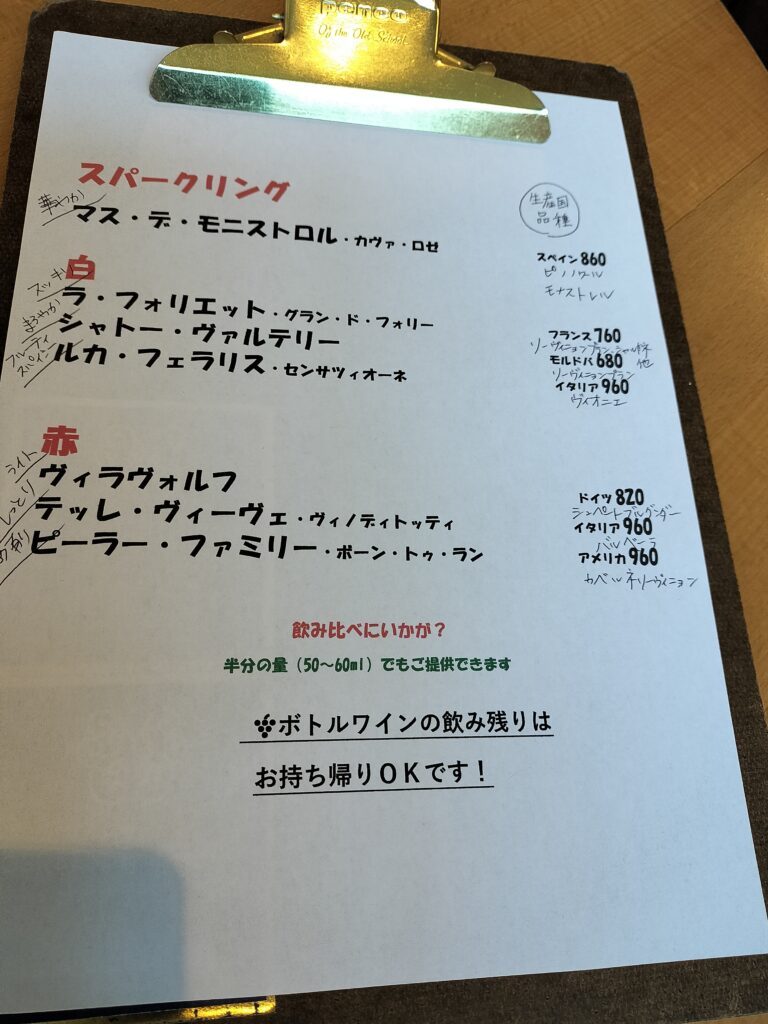 Of the Old School
スパークリング
生産国
品種
華やか
マス・デ・モニストロル・カヴァ・ロゼ
スペイン 860
ピノノワール
モナストレル
白
スッキリ
ラ・フォリエット・グラン・ド・フォリー
フランス 760
ソーヴィニョンブラン、シャルドネ 他
まろやか
シャトー・ヴァルテリー
モルドバ 680
ソーヴィニョンブラン
フルーティ
スパイシー
ルカ・フェラリス・センサツィオーネ
イタリア 960
ヴィオニエ
赤
ライト
ヴィラヴォルフ
ドイツ 820
シュペートブルグンダー
しっとり
テッレ・ヴィーヴェ・ヴィノディトッティ
イタリア 960
バルベーラ
ピーラー・ファミリー・ボーン・トゥ・ラン
アメリカ 960
カベルネソーヴィニョン
飲み比べにいかが？
半分の量（50～60ml）でもご提供できます
ボトルワインの飲み残りは
お持ち帰りＯＫです！